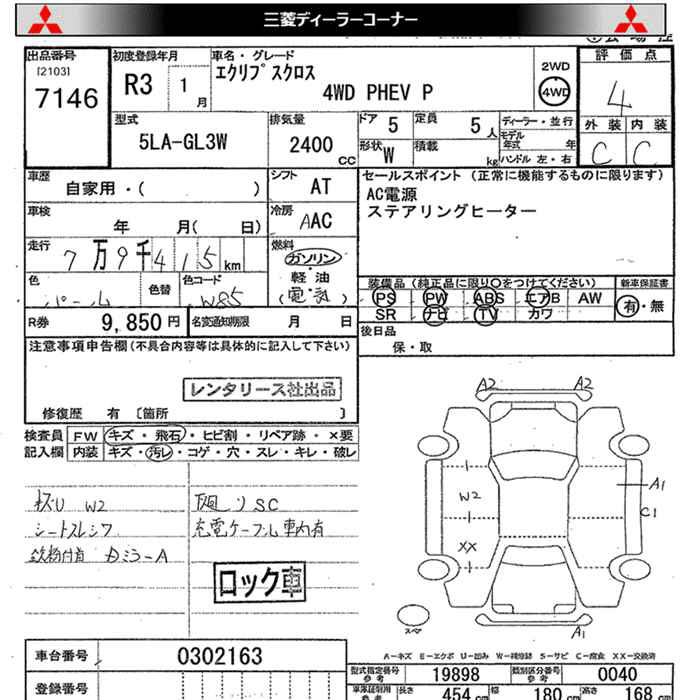 三菱ディーラーコーナー
出品番号
[2103]
7146
初度登録年月
R3 1月
車名・グレード
エクリプスクロス
4WD PHEV P
2WD
4WD
評価点
4
外装 内装
C C
型式
5LA-GL3W
排気量
2400 CC
ドア 5
定員 5人
形状 W
積載 kg
ディーラー・並行
モデル年式 年
ハンドル 左・右
車歴
自家用・( )
シフト AT
車検
年 月( 日)
冷房 AAC
走行
7万9千415km
燃料
ガソリン
軽油
(電気)
色
パール
色替
色コード
W85
セールスポイント (正常に機能するものに限ります)
AC電源
ステアリングヒーター
装備品 (純正品に限り○をつけてください)
PS PW ABS エアB AW
SR ナビ TV カワ
新車保証書
有・無
R券 9,850円
名変通知期限 月 日
後日品
保・取
注意事項申告欄(不具合内容等は具体的に記入して下さい)
レンタリース社出品
修復歴 有 [箇所 ]
検査員
記入欄
FW キズ・飛石・ヒビ割・リペア跡・×要
内装 キズ・汚レ・コゲ・穴・スレ・キレ・破レ
W2
下廻りSC
シートスレシワ
充電ケーブル車内有
鉄粉付着 カミラーA
ロック車
A2 A2
W2
XX
A1
C1
A1
スペア
A―キズ E―エクボ U―凹み W―補修跡 S―サビ C―腐食 XX―交換済
車台番号 0302163
登録番号
型式指定番号 参考 19898
類別区分番号 参考 0040
長さ 454 cm
幅 180 cm
高さ 168 cm